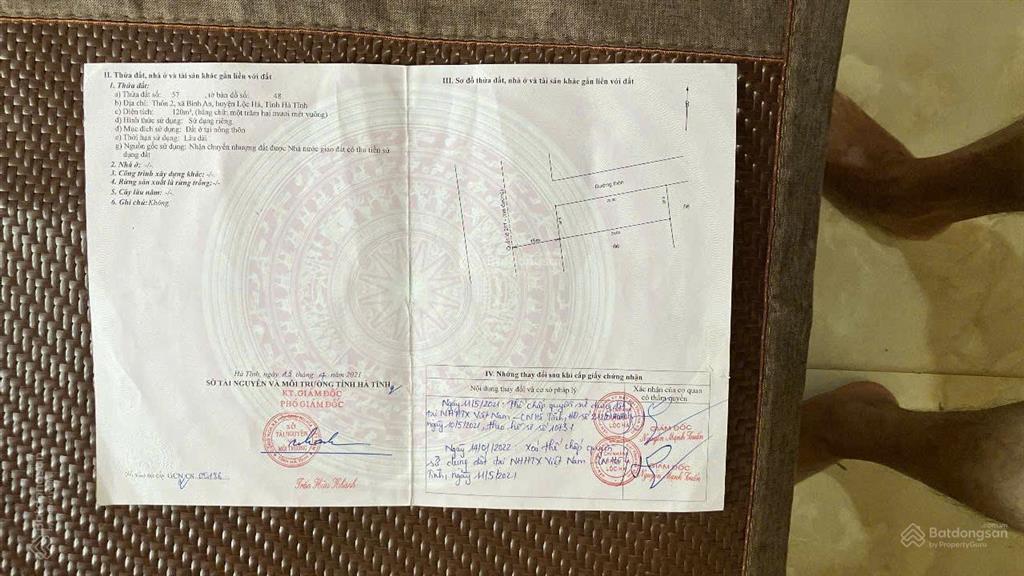 II. Thửa đất, nhà ở và tài sản khác gắn liền với đất
1. Thửa đất:
a) Thửa đất số: 57 , tờ bản đồ số: 48
b) Địa chỉ: Thôn 2, xã Bình An, huyện Lộc Hà, Tỉnh Hà Tĩnh
c) Diện tích: 120m², (bằng chữ: một trăm hai mươi mét vuông)
d) Hình thức sử dụng: Sử dụng riêng
đ) Mục đích sử dụng: Đất ở tại nông thôn
e) Thời hạn sử dụng: Lâu dài
g) Nguồn gốc sử dụng: Nhận chuyển nhượng đất được Nhà nước giao đất có thu tiền sử
dụng đất
2. Nhà ở: -/-
3. Công trình xây dựng khác: -/-
4. Rừng sản xuất là rừng trồng:-/-
5. Cây lâu năm: -/-
6. Ghi chú:Không
Hà Tĩnh, ngày tháng năm 2021
SỞ TÀI NGUYÊN VÀ MÔI TRƯỜNG TỈNH HÀ TĨNH
KT. GIÁM ĐỐC
PHÓ GIÁM ĐỐC
SỞ
TÀI NGUYÊN
MÔI TRƯỜNG
Trần Hữu Khanh
GCN: CS
III. Sơ đồ thửa đất, nhà ở và tài sản khác gắn liền với đất
B
Đường thôn
IV. Những thay đổi sau khi cấp giấy chứng nhận
Nội dung thay đổi và cơ sở pháp lý
Xác nhận của cơ quan
có thẩm quyền
Ngày 11/5/2021: Thế chấp quyền sử dụng đất
tại NHHTX Việt Nam - CN Hà Tĩnh, HĐ số
ngày 10/5/2021, theo hồ sơ số
GIÁM ĐỐC
Nguyễn Mạnh Tuấn
Ngày 14/01/2022: Xoá thế chấp quyền
sử dụng đất tại NHHTX Việt Nam CN Hà
Tĩnh, ngày 11/5/2021
GIÁM ĐỐC
Nguyễn Mạnh Tuấn
Batdongsan
.com.vn
by PropertyGuru